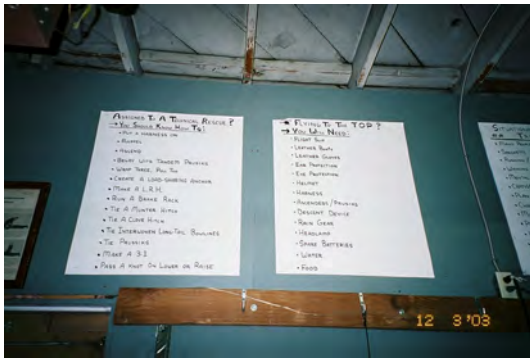 ASSIGNED TO A TECHNICAL RESCUE?
→ YOU SHOULD KNOW HOW TO:
• PUT A HARNESS ON
• RAPPEL
• ASCEND
• BELAY WITH TANDEM PRUSIKS
• WRAP THREE, PULL TWO
• CREATE A LOAD-SHARING ANCHOR
• MAKE A L.R.H.
• RUN A BRAKE RACK
• TIE A MUNTER HITCH
• TIE A CLOVE HITCH
• TIE INTERWOVEN LONG-TAIL BOWLINES
• TIE PRUSIKS
• MAKE A 3:1
• PASS A KNOT ON LOWER OR RAISE
FLYING TO THE TOP?
→ YOU WILL NEED:
• FLIGHT SUIT
• LEATHER BOOTS
• LEATHER GLOVES
• EYE PROTECTION
• EAR PROTECTION
• HELMET
• HARNESS
• ASCENDERS/PRUSIKS
• DESCENT DEVICE
• RAIN GEAR
• HEADLAMP
• SPARE BATTERIES
• WATER
• FOOD
12 3 '03